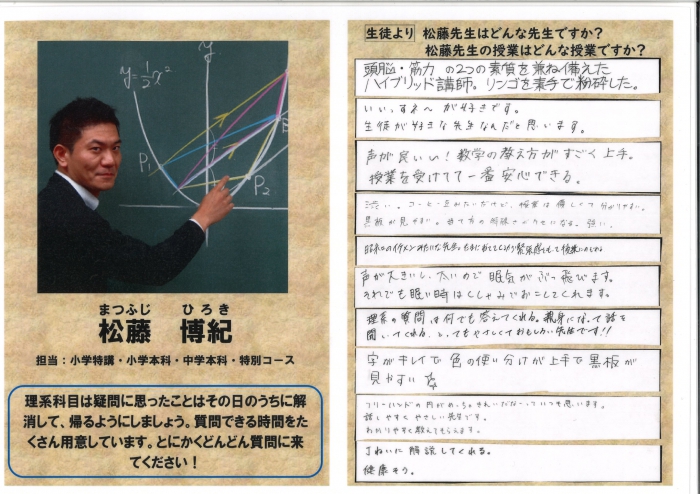 y=½x²
y
P₁
P₂
まつふじ ひろき
松藤 博紀
担当：小学特講・小学本科・中学本科・特別コース
理系科目は疑問に思ったことはその日のうちに解
消して、帰るようにしましょう。質問できる時間をた
くさん用意しています。とにかくどんどん質問に来
てください！
生徒より 松藤先生はどんな先生ですか？
松藤先生の授業はどんな授業ですか？
頭脳・筋力 の2つの素質を兼ね備えた
ハイブリッド講師。リンゴを素手で粉砕した。
いいっすね〜 が好きです。
生徒が好きな先生なんだと思います。
声が良いい！数学の教え方がすごく上手。
授業を受けてて一番安心できる。
渋い。コーヒー豆みたいだけど、授業は優しくて分かりやすい。
黒板が見やすい。
声が大きいし、太いので眠気がぶっ飛びます。
それでも眠い時はくしゃみでおこしてくれます。
理系の質問は何でも答えてくれる。親身になって話を
聞いてくれる、とってもやさしくておもしろい先生です!!
字がキレイで色の使い分けが上手で黒板が
見やすい
フリーハンドの円がめっちゃきれいだなーっていつも思います。
話しやすくやさしい先生です。
わかりやすく教えてもらえます。
丁ねいに解説してくれる。
健康そう。